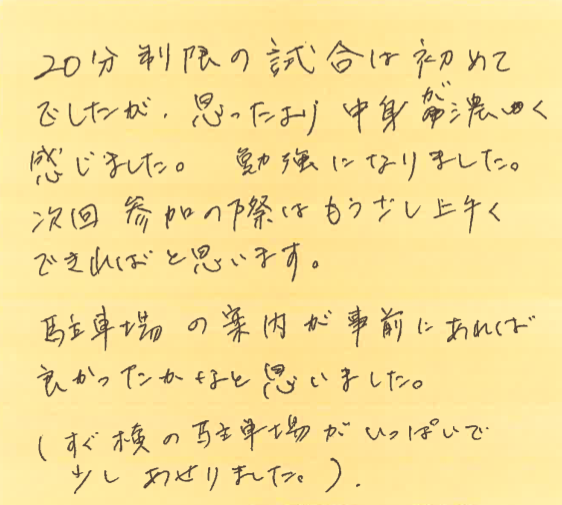 20分制限の試合は初めて
でしたが、思ったより中身が濃ゆく
感じました。 勉強になりました。
次回参加の際はもう少し上手く
できればと思います。
駐車場の案内が事前にあれば
良かったかなと思いました。
(すぐ横の駐車場がいっぱいで
少しあせりました。).